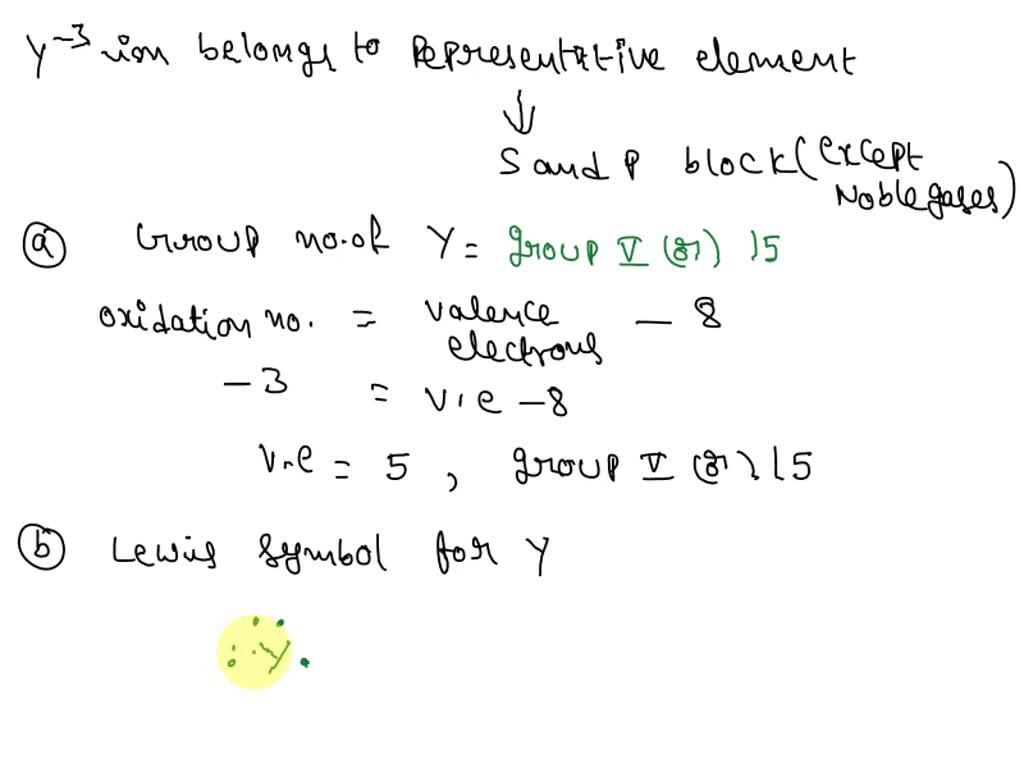 Y⁻³ ion belongs to Representative element
↓
S and P block (except Noble gases)
ⓐ Group no. of Y = group V (or) 15
oxidation no. = valence electrons – 8
– 3 = v.e – 8
v.e = 5, group V (or) 15
ⓑ Lewis symbol for Y
Y